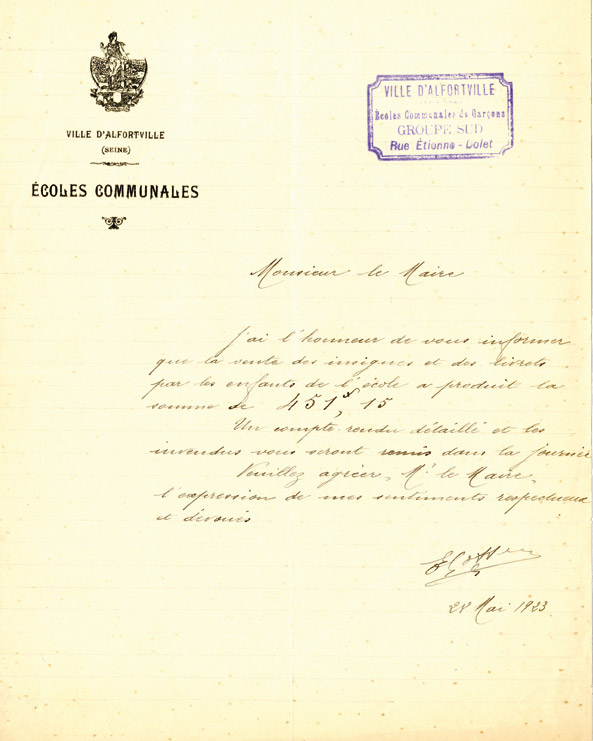 VILLE D'ALFORTVILLE
(SEINE)
ÉCOLES COMMUNALES
VILLE D'ALFORTVILLE
Écoles Communales de Garçons
GROUPE SUD
Rue Étienne-Dolet
Monsieur le Maire
J'ai l'honneur de vous informer
que la vente des insignes et des livrets
par les enfants de l'école a produit la
somme de 451f, 15
Un compte-rendu détaillé et les
invendus vous seront remis dans la journée
Veuillez agréer, Mr le Maire,
l'expression de mes sentiments respectueux
et dévoués
28 Mai 1923